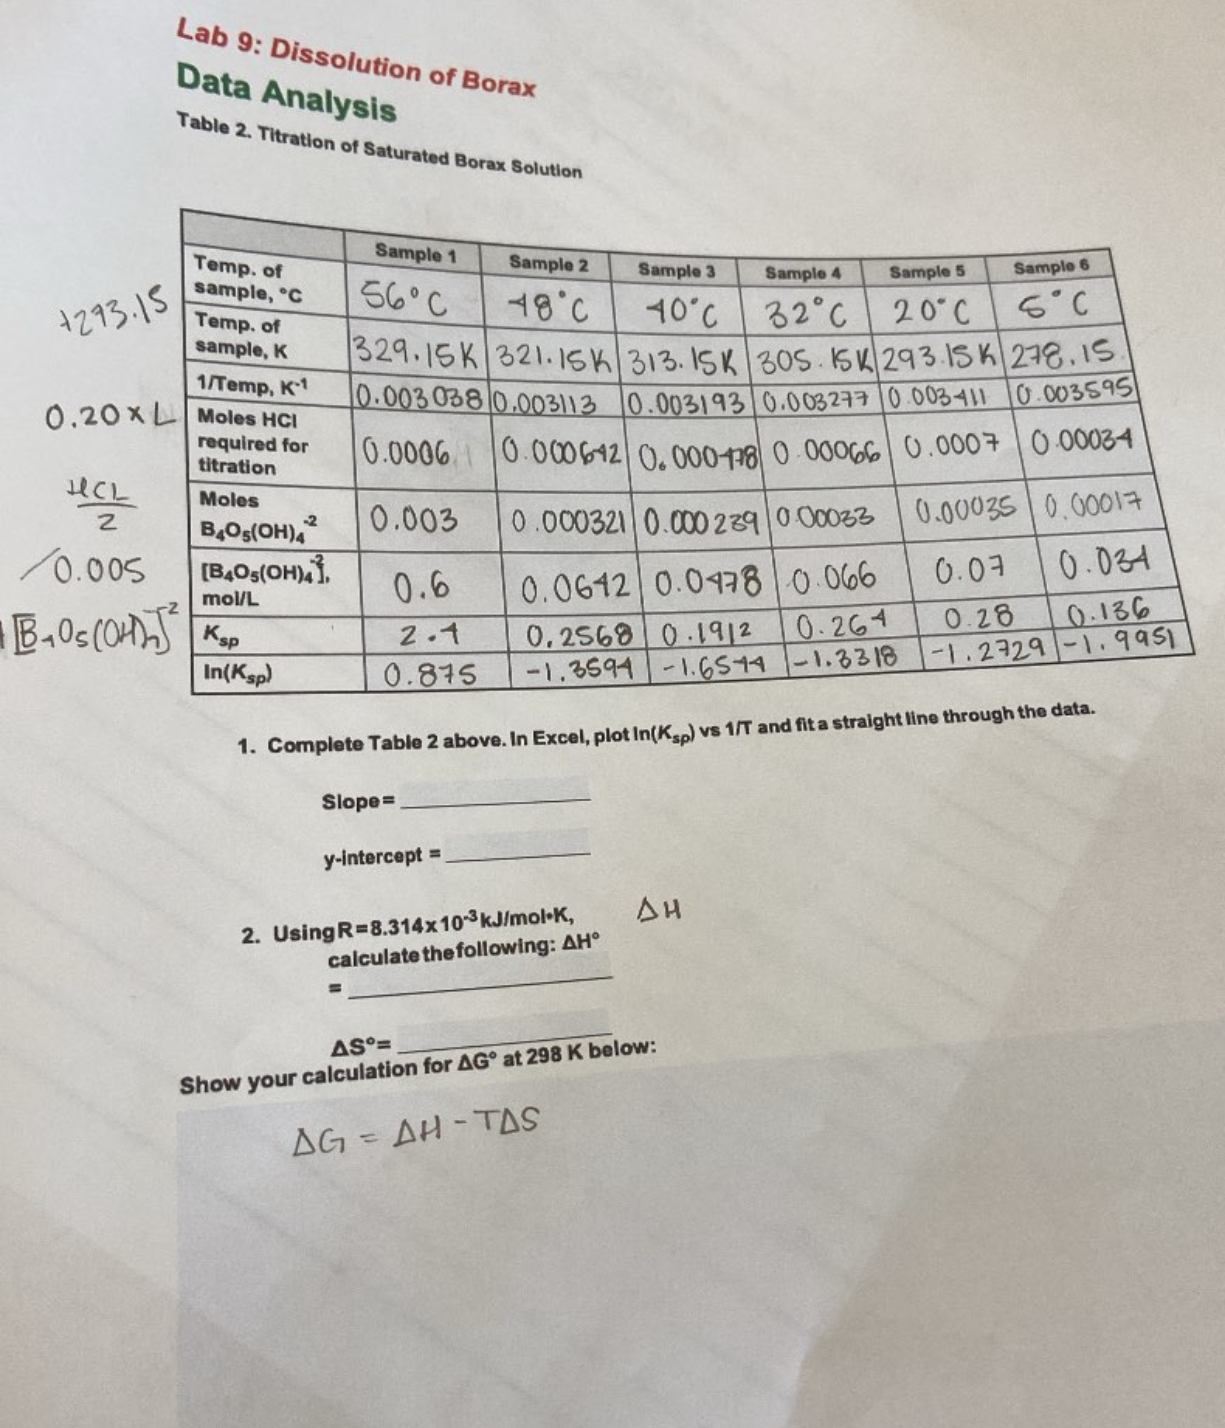 Lab 9: Dissolution of Borax
Data Analysis
Table 2. Titration of Saturated Borax Solution
Sample 1 Sample 2 Sample 3 Sample 4 Sample 5 Sample 6
Temp. of sample, °C 56°C 48°C 40°C 32°C 20°C 5°C
+293.15
Temp. of sample, K 329.15K 321.15K 313.15K 305.15K 293.15K 278.15
1/Temp, K-1 0.003038 0.003113 0.003193 0.003277 0.003411 0.003595
0.20 x L
Moles HCl required for titration 0.0006 0.000642 0.000478 0.00066 0.0007 0.00034
HCL/2
Moles B4O5(OH)4-2 0.003 0.000321 0.000239 0.00033 0.00035 0.00017
/0.005
[B4O5(OH)4-2], mol/L 0.6 0.0642 0.0478 0.066 0.07 0.034
[B4O5(OH)4]-2
Ksp 2.4 0.2568 0.1912 0.264 0.28 0.136
ln(Ksp) 0.875 -1.3594 -1.6544 -1.3318 -1.2729 -1.9951
1. Complete Table 2 above. In Excel, plot ln(Ksp) vs 1/T and fit a straight line through the data.
Slope=
y-intercept =
2. Using R=8.314x10-3 kJ/mol•K, ΔH
calculate the following: ΔH°
=
ΔS°=
Show your calculation for ΔG° at 298 K below:
ΔG = ΔH - TΔS